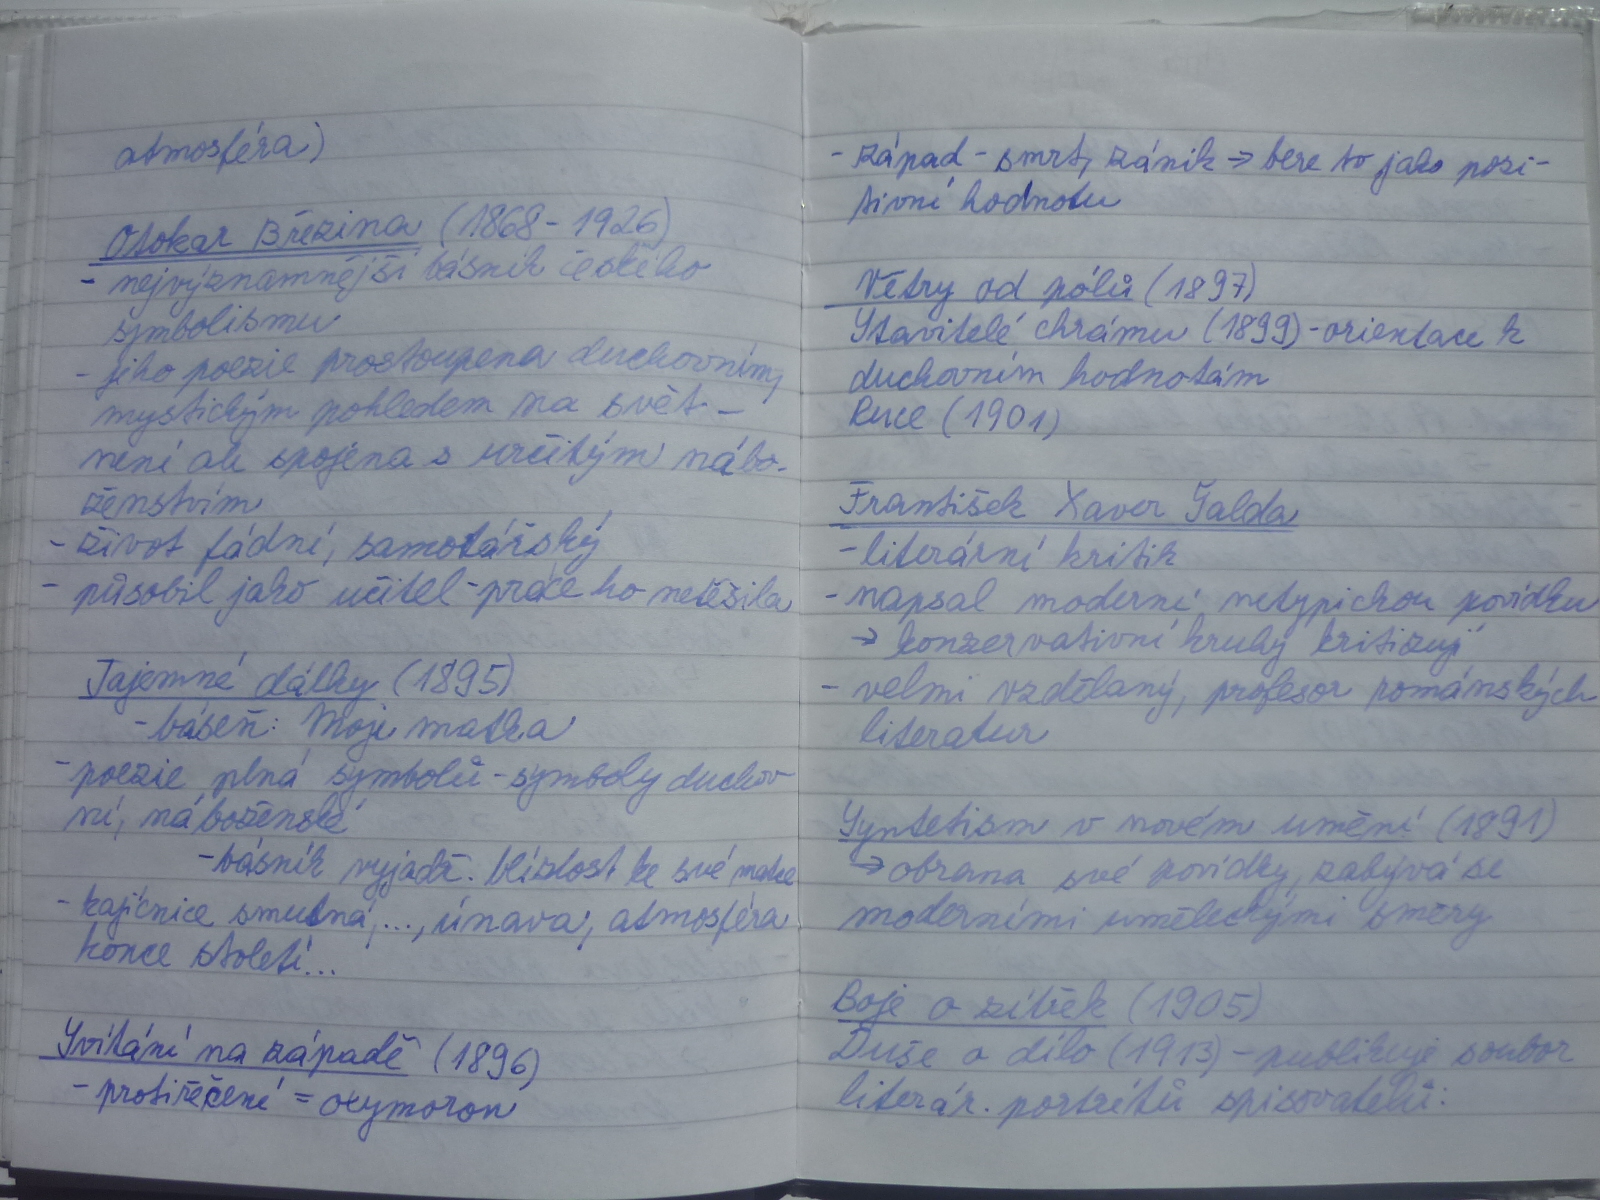 atmosféra)
Otokar Březina (1868-1926)
- nejvýznamnější básník českého
symbolismu
- jeho poezie prostoupena duchovním,
mystickým pohledem na svět -
není ale spojena s určitým nábo-
ženstvím
- život fádní, samotářský
- působil jako učitel - práce ho netěšila
Tajemné dálky (1895)
- báseň: Moje matka
- poezie plná symbolů - symboly duchov-
ní, náboženské
- básník vyjadř. blízkost ke své matce
- kajícnice smutná,..., únava, atmosféra
konce století...
Svítání na západě (1896)
- protiřečení = oxymoron
- západ - smrt, zánik → bere to jako pozi-
tivní hodnotu
Větry od pólů (1897)
Stavitelé chrámu (1899) - orientace k
duchovním hodnotám
Ruce (1901)
František Xaver Šalda
- literární kritik
- napsal moderní, netypickou povídku
→ konzervativní kruhy kritizují
- velmi vzdělaný, profesor románských
literatur
Syntetism v novém umění (1891)
→ obrana své povídky, zabývá se
moderními uměleckými směry
Boje o zítřek (1905)
Duše a dílo (1913) - publikuje soubor
literár. portrétů spisovatelů: